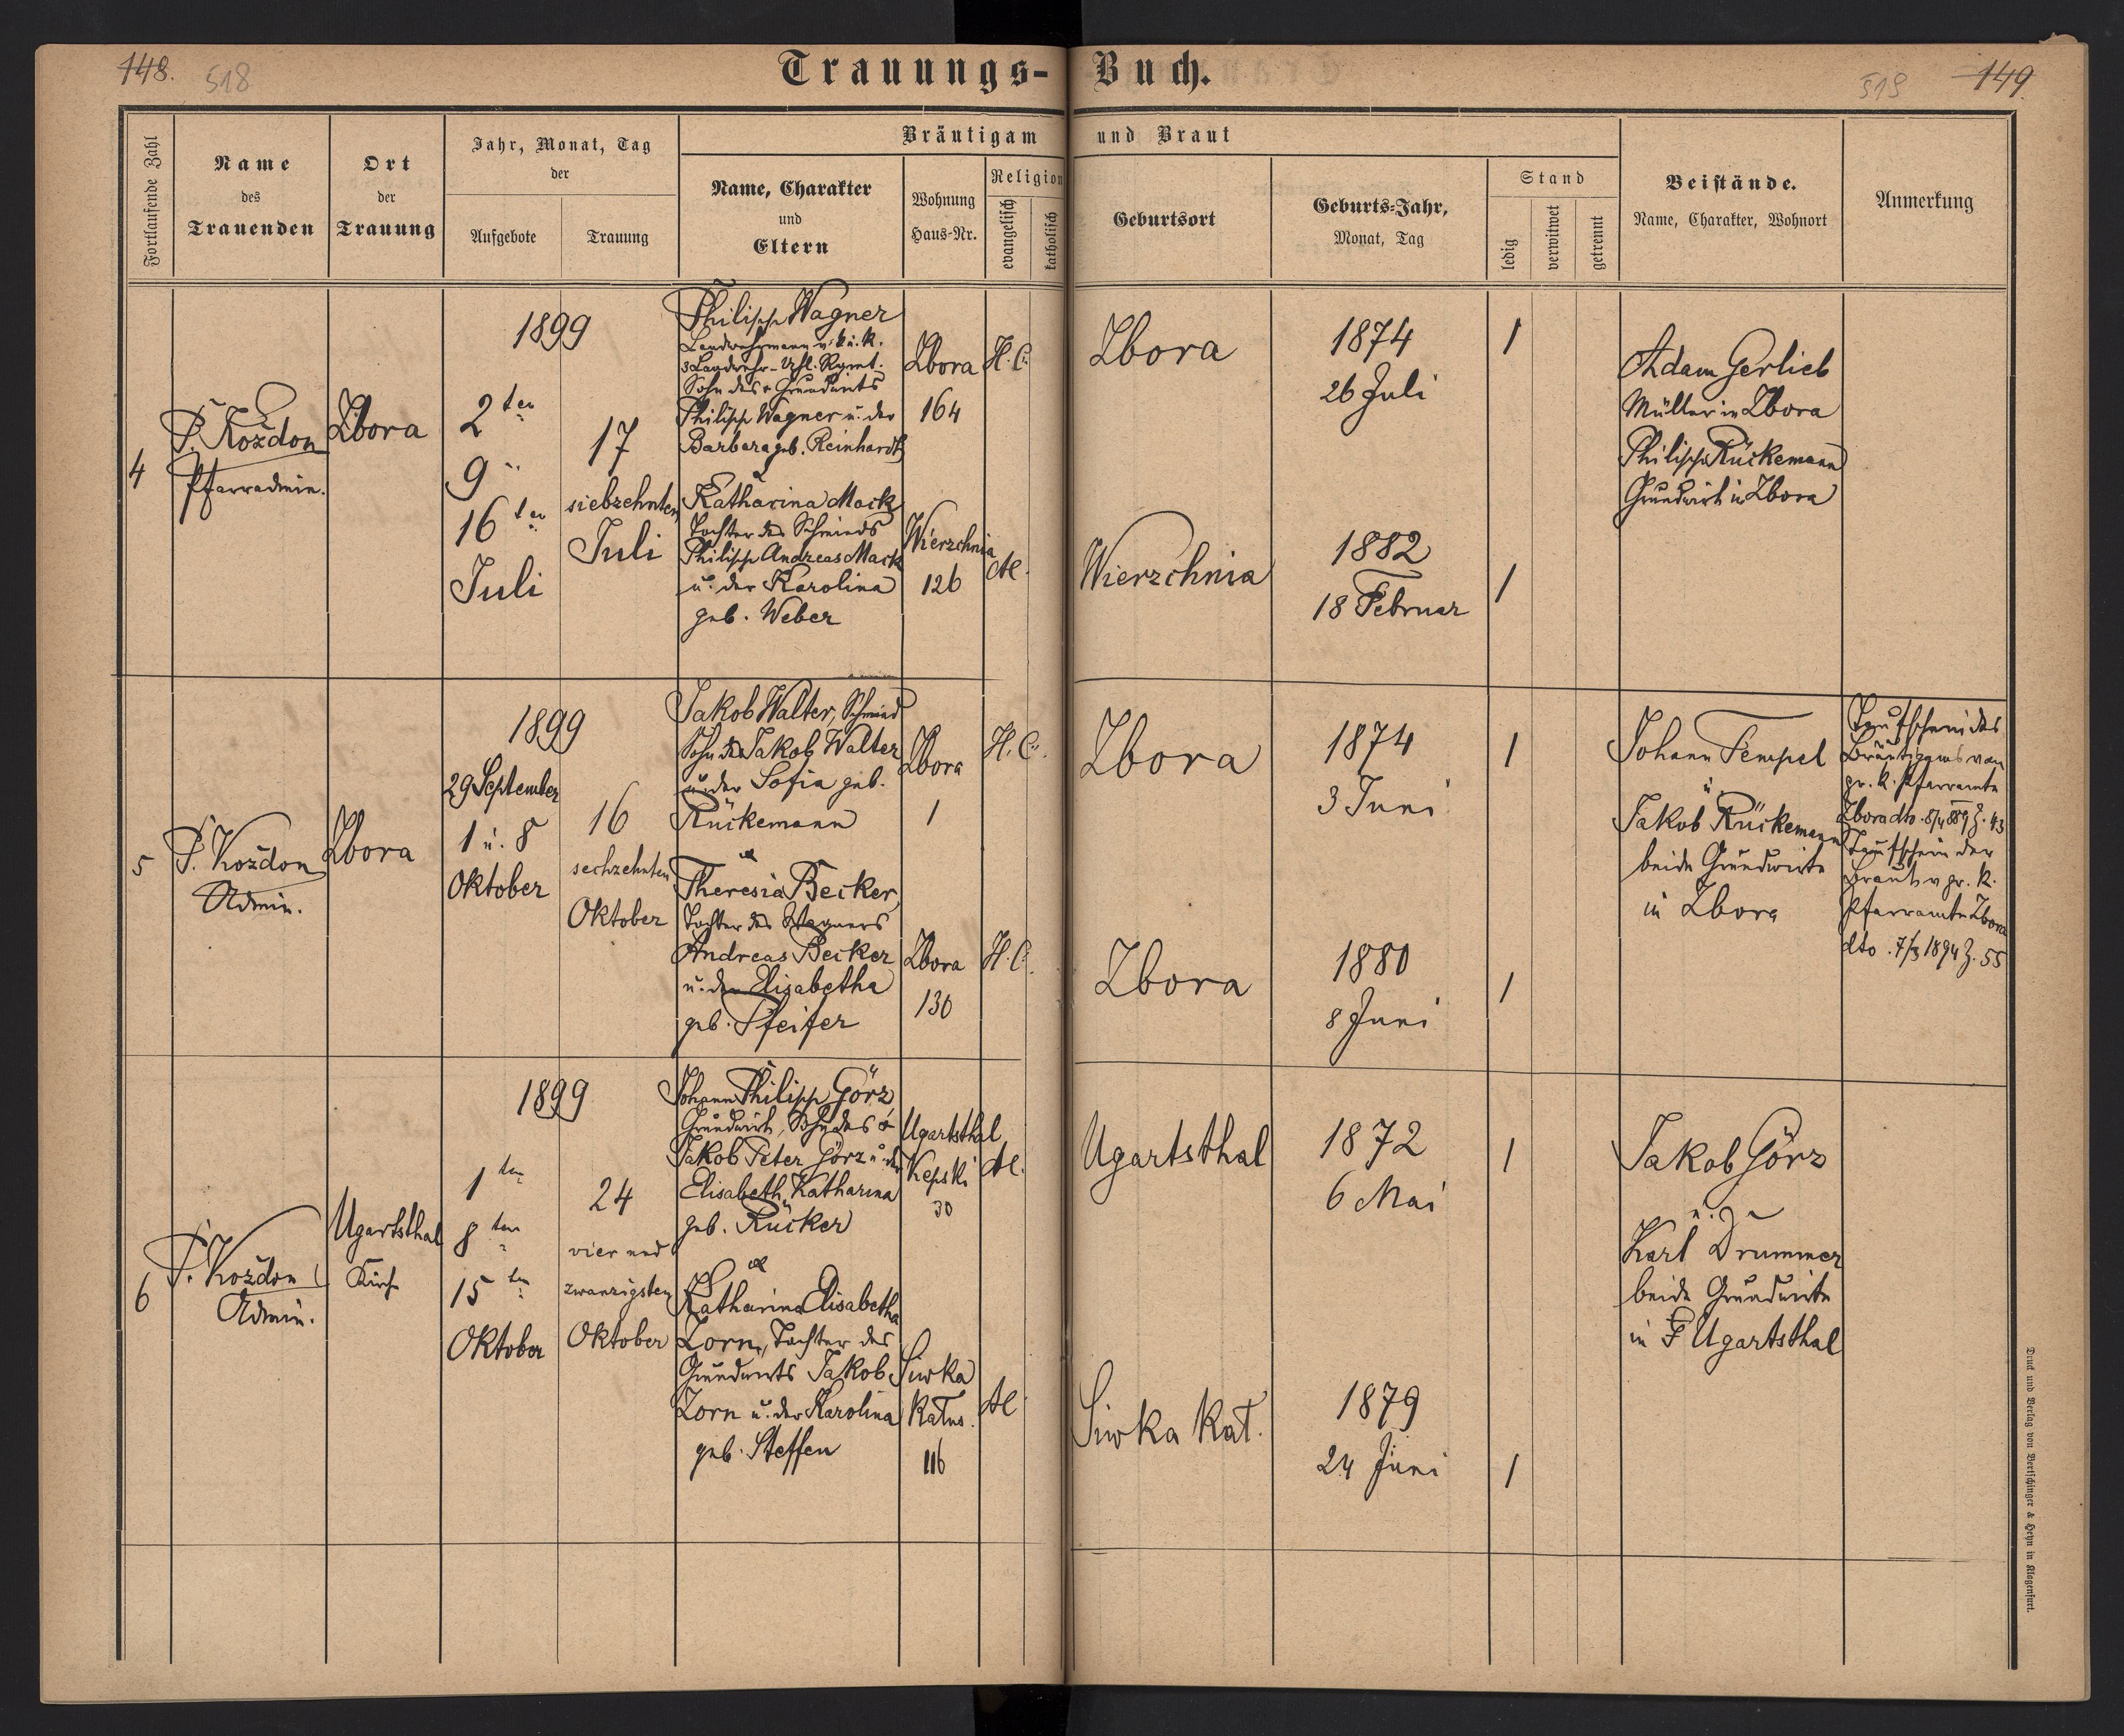 148. 518
Trauungs-Buch.
519 149
Fortlaufende Zahl
Name
des
Trauenden
Ort
der
Trauung
Jahr, Monat, Tag
der
Aufgebote
Trauung
Bräutigam und Braut
Name, Charakter
und
Eltern
Wohnung
Haus-Nr.
Religion
evangelisch
katholisch
Geburtsort
Geburts-Jahr,
Monat, Tag
Stand
ledig
verwitwet
getrennt
Beistände.
Name, Charakter, Wohnort
Anmerkung
4
P. Kożdon
Pfarradmin.
Zbora
1899
2ten
9"
16ten
Juli
17
siebzehnten
Juli
Philipp Wagner
Landwehrmann v. k. u. k.
3 Landwehr- Rgmt.
Sohn des + Grundwirts
Philipp Wagner u. der
Barbara geb. Reinhardt
&
Katharina Mack
Tochter des Schmieds
Philipp Andreas Mack
u. der Karolina
geb. Weber
Zbora
164
H. C.
Wierzchnia
126
A.
Zbora
Wierzchnia
1874
26 Juli
1
1882
18 Februar
1
Adam Gerlieb
Müller in Zbora
Philipp Rückemann
Grundwirt in Zbora
5
P. Kożdon
Admin.
Zbora
1899
29 September
1 u. 8
Oktober
16
sechzehnten
Oktober
Jakob Walter, Schmied
Sohn des Jakob Walter
u. der Sofia geb.
Rückemann
&
Theresia Becker,
Tochter des Wagners
Andreas Becker
u. der Elisabetha
geb. Pfeifer
Zbora
1
H. C.
Zbora
130
H. C.
Zbora
Zbora
1874
3 Juni
1
1880
8 Juni
1
Johann Tempel
u.
Jakob Rückemann
beide Grundwirte
in Zbora
Taufschein des
Bräutigams vom
gr. k. Pfarramte
Zbora dto. 8/4 889 Z. 43
Taufschein der
Braut v gr. k.
Pfarramte Zbora
dto. 7/3 1894 Z. 55
6
P. Kożdon
Admin.
Ugartsthal
Kirche
1899
1ten
8ten
15ten
Oktober
24
vier und
zwanzigsten
Oktober
Johann Philipp Görz,
Grundwirt, Sohn des +
Jakob Peter Görz u. der
Elisabeth Katharina
geb. Rücker
&
Katharina Elisabetha
Zorn, Tochter des
Grundwirts Jakob
Zorn u. der Karolina
geb. Steffen
Ugartsthal
Kepski
30
A.
Siwka
Kałus.
116
A.
Ugartsthal
Siwka Kał.
1872
6 Mai
1
1879
24 Juni
1
Jakob Görz
u.
Karl Drummer
beide Grundwirte
in Ugartsthal
Druck und Verlag von Bertschinger & Heyn in Klagenfurt.